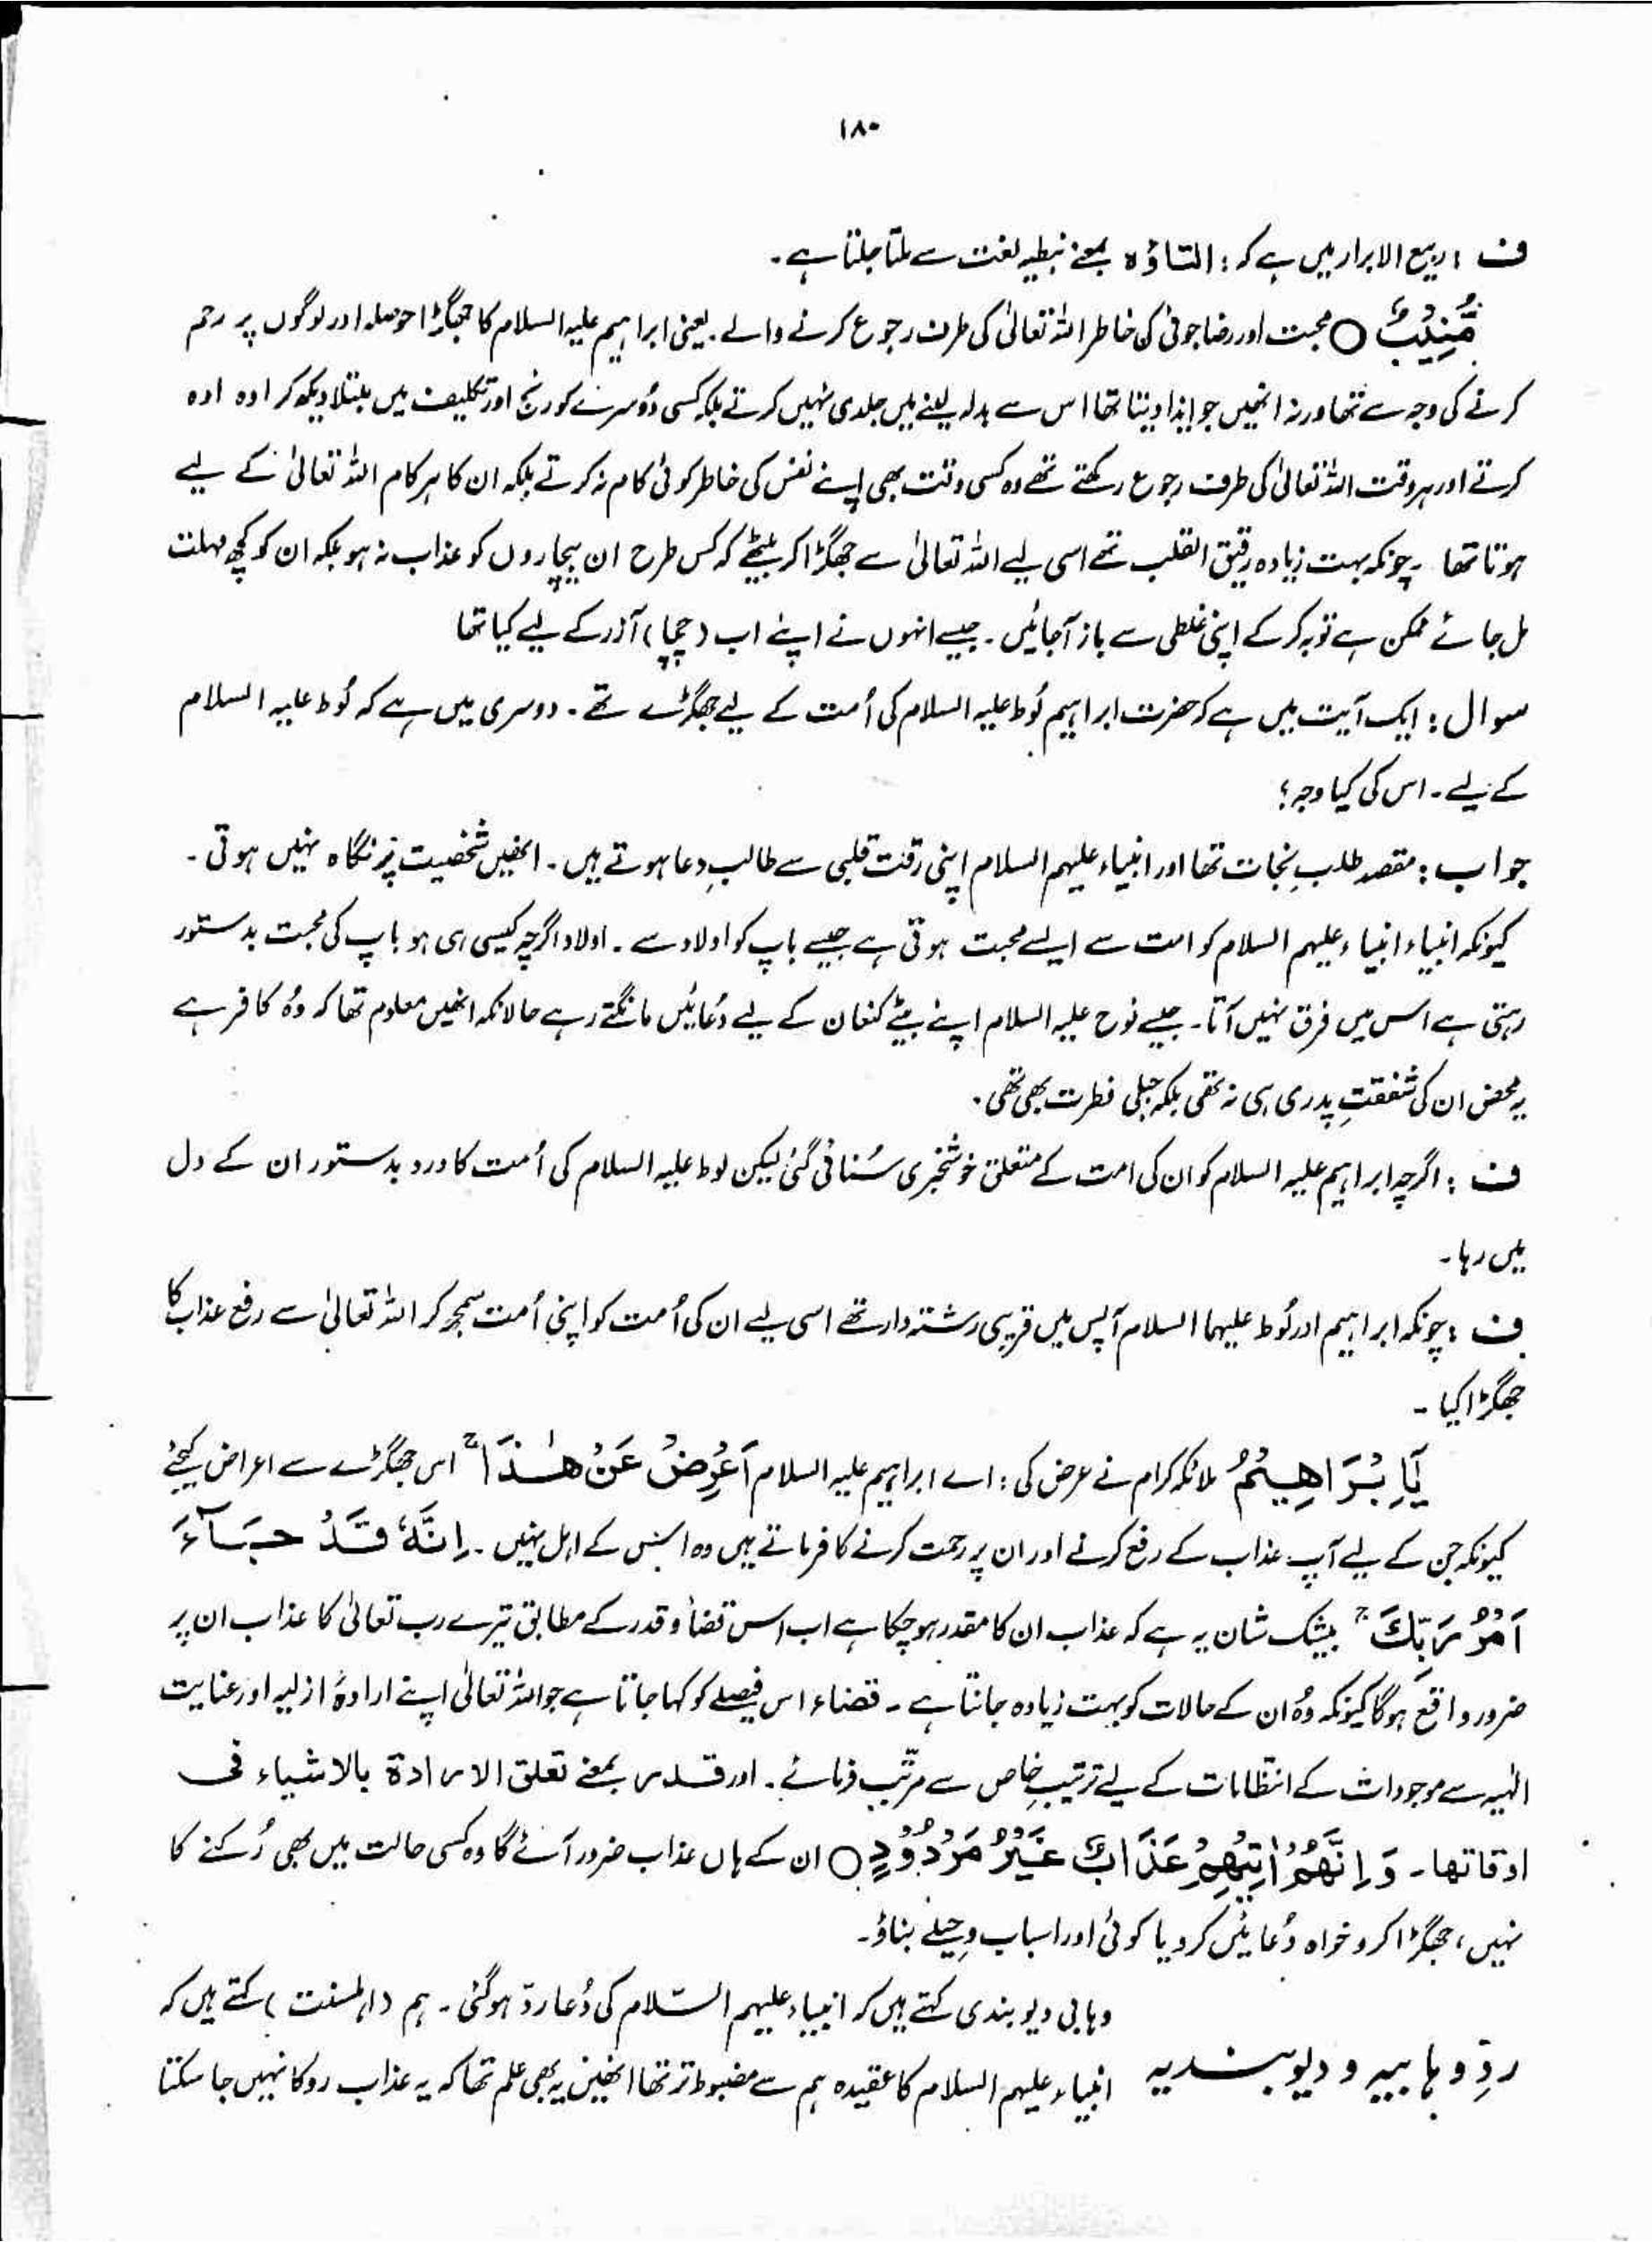 ۱۸۰
ف : ربیع الابرار میں ہے کہ : التاؤہ بمعنے نبطیہ لغت سے ملتا جلتا ہے۔
مُّنِیْبٌ ○ محبت اور رضا جوئی کی خاطر اللہ تعالیٰ کی طرف رجوع کرنے والے۔ یعنی ابراہیم علیہ السلام کا جھگڑا حوصلہ اور لوگوں پر رحم
کرنے کی وجہ سے تھا ورنہ انھیں جو ایذا دیتا تھا اس سے بدلہ لینے میں جلدی نہیں کرتے بلکہ کسی دُوسرے کو رنج اور تکلیف میں مبتلا دیکھ کر اوہ اوہ
کرتے اور ہر وقت اللہ تعالیٰ کی طرف رجوع رکھتے تھے وہ کسی وقت بھی اپنے نفس کی خاطر کوئی کام نہ کرتے بلکہ ان کا ہر کام اللہ تعالیٰ کے لیے
ہوتا تھا ۔ چونکہ بہت زیادہ رقیق القلب تھے اسی لیے اللہ تعالیٰ سے جھگڑا کر بیٹھے کہ کس طرح ان بیچاروں کو عذاب نہ ہو بلکہ ان کو کچھ مہلت
مل جائے ممکن ہے توبہ کر کے اپنی غلطی سے باز آجائیں۔ جیسے انہوں نے اپنے اب (چچا) آزر کے لیے کیا تھا
سوال : ایک آیت میں ہے کہ حضرت ابراہیم لُوط علیہ السلام کی اُمت کے لیے جھگڑے تھے۔ دوسری میں ہے کہ لُوط علیہ السلام
کے لیے۔ اس کی کیا وجہ؟
جواب : مقصد طلبِ نجات تھا اور انبیاء علیہم السلام اپنی رقت قلبی سے طالبِ دعا ہوتے ہیں۔ انھیں شخصیت پر نگاہ نہیں ہوتی۔
کیونکہ انبیاء انبیاء علیہم السلام کو امت سے ایسے محبت ہوتی ہے جیسے باپ کو اولاد سے۔ اولاد اگرچہ کیسی ہی ہو باپ کی محبت بدستور
رہتی ہے اس میں فرق نہیں آتا۔ جیسے نوح علیہ السلام اپنے بیٹے کنعان کے لیے دُعائیں مانگتے رہے حالانکہ انھیں معلوم تھا کہ وُہ کافر ہے
یہ محض ان کی شفقتِ پدری ہی نہ تھی بلکہ جبلی فطرت بھی تھی۔
ف : اگرچہ ابراہیم علیہ السلام کو ان کی امت کے متعلق خوشخبری سُنائی گئی لیکن لوط علیہ السلام کی اُمت کا درد بدستور ان کے دل
میں رہا۔
ف : چونکہ ابراہیم اور لُوط علیہما السلام آپس میں قریبی رشتہ دار تھے اسی لیے ان کی اُمت کو اپنی اُمت سمجھ کر اللہ تعالیٰ سے رفع عذاب کا
جھگڑا کیا ۔
یٰٓاِبْرَاهِیْمُ ملائکہ کرام نے عرض کی : اے ابراہیم علیہ السلام اَعْرِضْ عَنْ هٰذَا ۚ اس جھگڑے سے اعراض کیجئے
کیونکہ جن کے لیے آپ عذاب کے رفع کرنے اور ان پر رحمت کرنے کا فرماتے ہیں وہ اس کے اہل نہیں۔ اِنَّهٗ قَدْ جَآءَ
اَمْرُ رَبِّكَ ۚ بیشک شان یہ ہے کہ عذاب ان کا مقدر ہو چکا ہے اب اس قضاؤ قدر کے مطابق تیرے رب تعالیٰ کا عذاب ان پر
ضرور واقع ہوگا کیونکہ وُہ ان کے حالات کو بہت زیادہ جانتا ہے ۔ قضاء اس فیصلے کو کہا جاتا ہے جو اللہ تعالیٰ اپنے ارادۂ ازلیہ اور عنایت
الٰہیہ سے موجودات کے انتظامات کے لیے ترتیبِ خاص سے مرتّب فرمائے۔ اور قدر بمعنے تعلق الارادة بالاشیاء فی
اوقاتها۔ وَ اِنَّهُمْ اٰتِیْهِمْ عَذَابٌ غَیْرُ مَرْدُوْدٍ ○ ان کے ہاں عذاب ضرور آئے گا وہ کسی حالت میں بھی رُکنے کا
نہیں، جھگڑا کرو خواہ دُعائیں کرو یا کوئی اور اسباب و حیلے بناؤ۔
وہابی دیوبندی کہتے ہیں کہ انبیاء علیہم السّلام کی دُعا ردّ ہوگئی۔ ہم (اہلسنت) کہتے ہیں کہ
ردِّ وہابیہ و دیوبندیہ
انبیاء علیہم السلام کا عقیدہ ہم سے مضبوط تر تھا انھیں یہ بھی علم تھا کہ یہ عذاب روکا نہیں جا سکتا